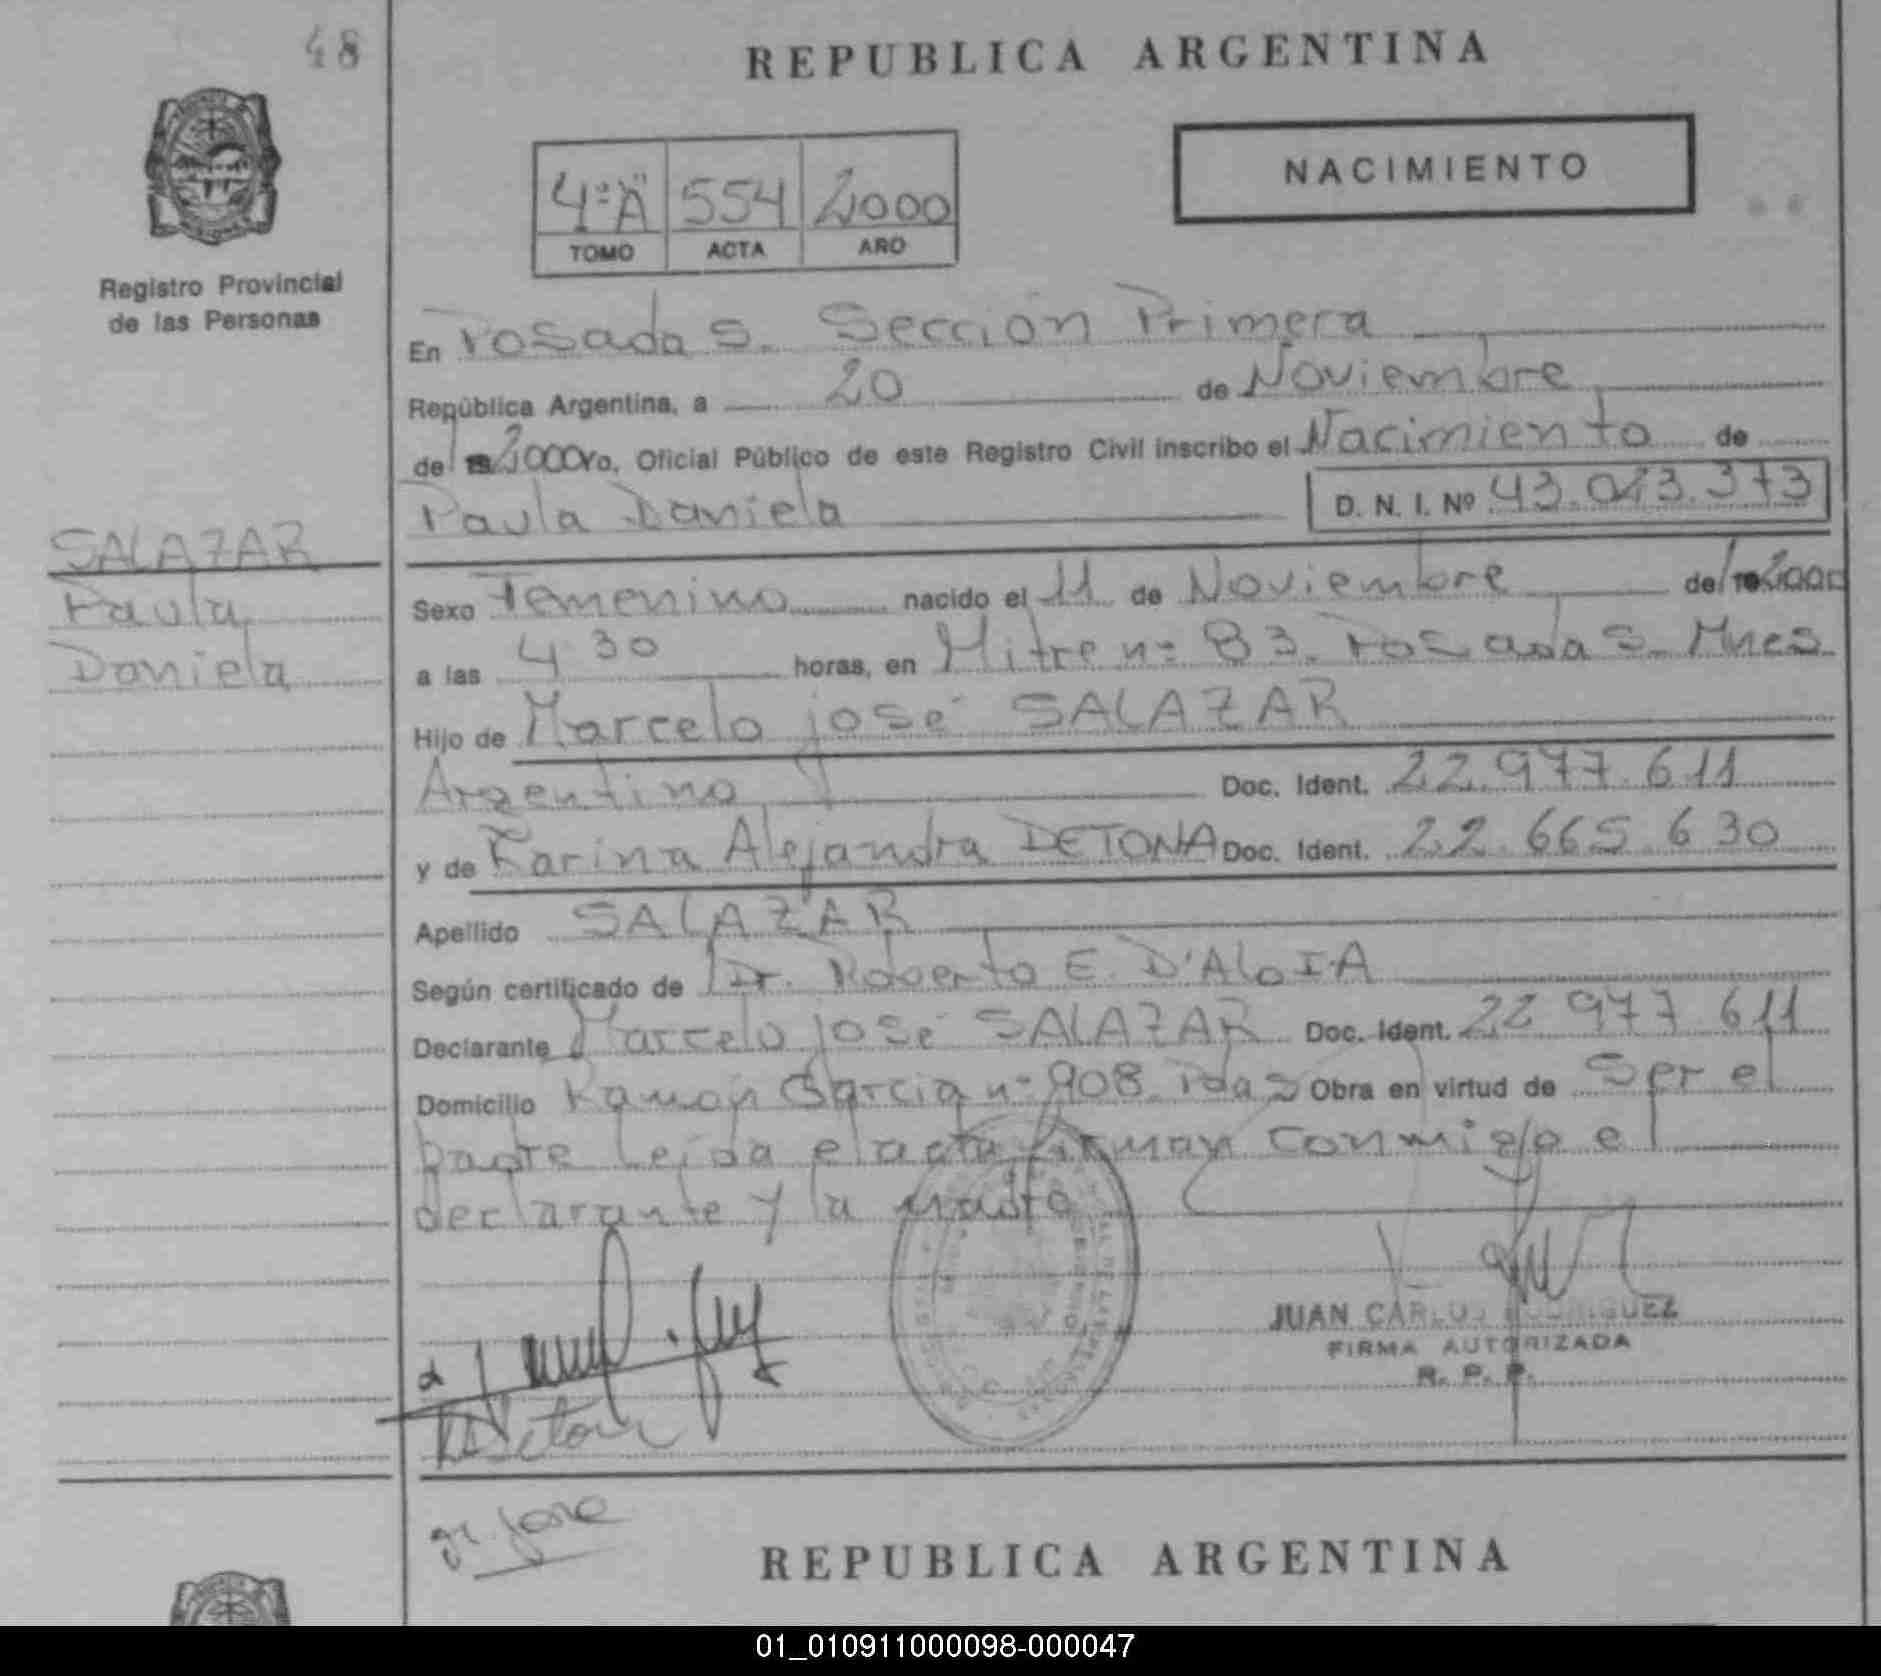 48
REPUBLICA ARGENTINA
NACIMIENTO
4º "A" 554 2000
TOMO ACTA AÑO
Registro Provincial
de las Personas
En Posadas. Sección Primera
República Argentina, a 20 de Noviembre
de 2000 yo, Oficial Público de este Registro Civil inscribo el Nacimiento de
Paula Daniela D. N. I. Nº 43.043.373
SALAZAR
Paula
Daniela
Sexo Femenino nacido el 11 de Noviembre de 2000
a las 4 30 horas, en Mitre nº 83. Posadas. Mnes
Hijo de Marcelo josé SALAZAR
Argentino Doc. Ident. 22.977.611
y de Karina Alejandra DETONA Doc. Ident. 22.665.630
Apellido SALAZAR
Según certificado de Dr. Roberto E. D'AloIA
Declarante Marcelo josé SALAZAR Doc. Ident. 22 977 611
Domicilio Ramón García nº 908. Pdas Obra en virtud de Ser el
padre Leída el acta firman conmigo el
declarante y la madre
JUAN CARLOS RODRIGUEZ
FIRMA AUTORIZADA
R. P. P.
REPUBLICA ARGENTINA
01_010911000098-000047